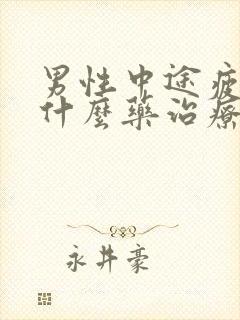 男性中途疲
什麼藥治療
永井豪